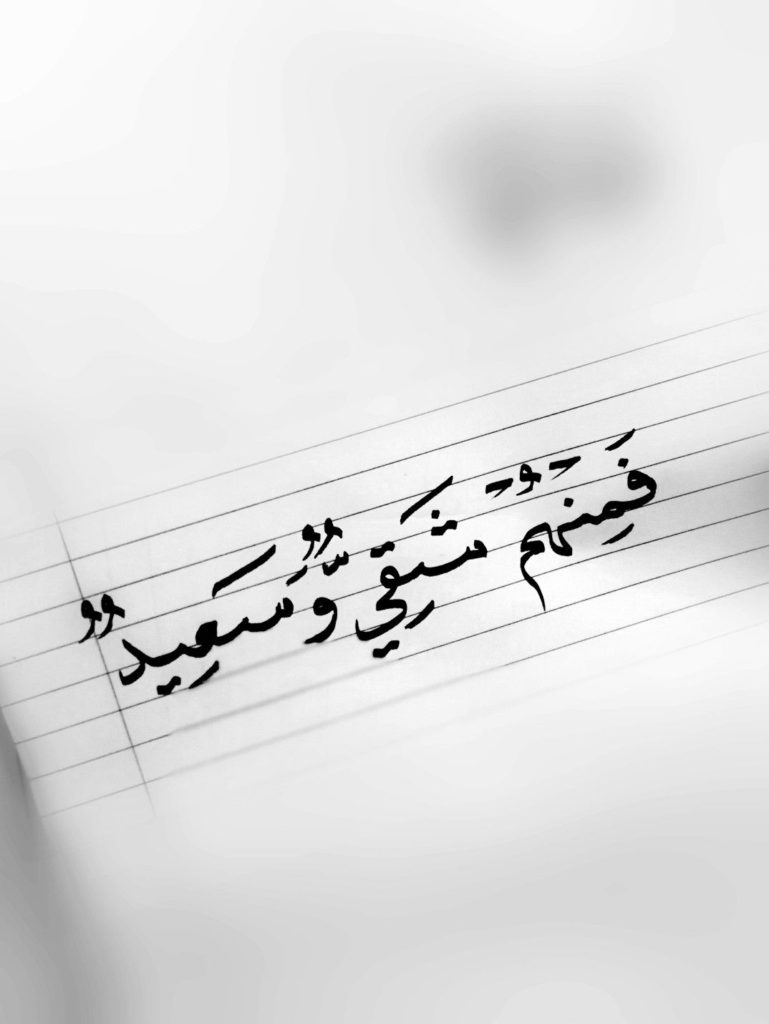 فَمِنْهُمْ شَقِيٌّ وَّسَعِيدٌ